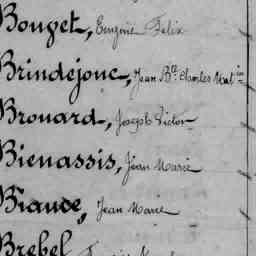 Bouyet, Eugène Félix
Brindejouc, Jean Bte Charles
Brouard, Joseph Victor
Bienassis, Jean Marie
Biance, Jean Marie
Brebel